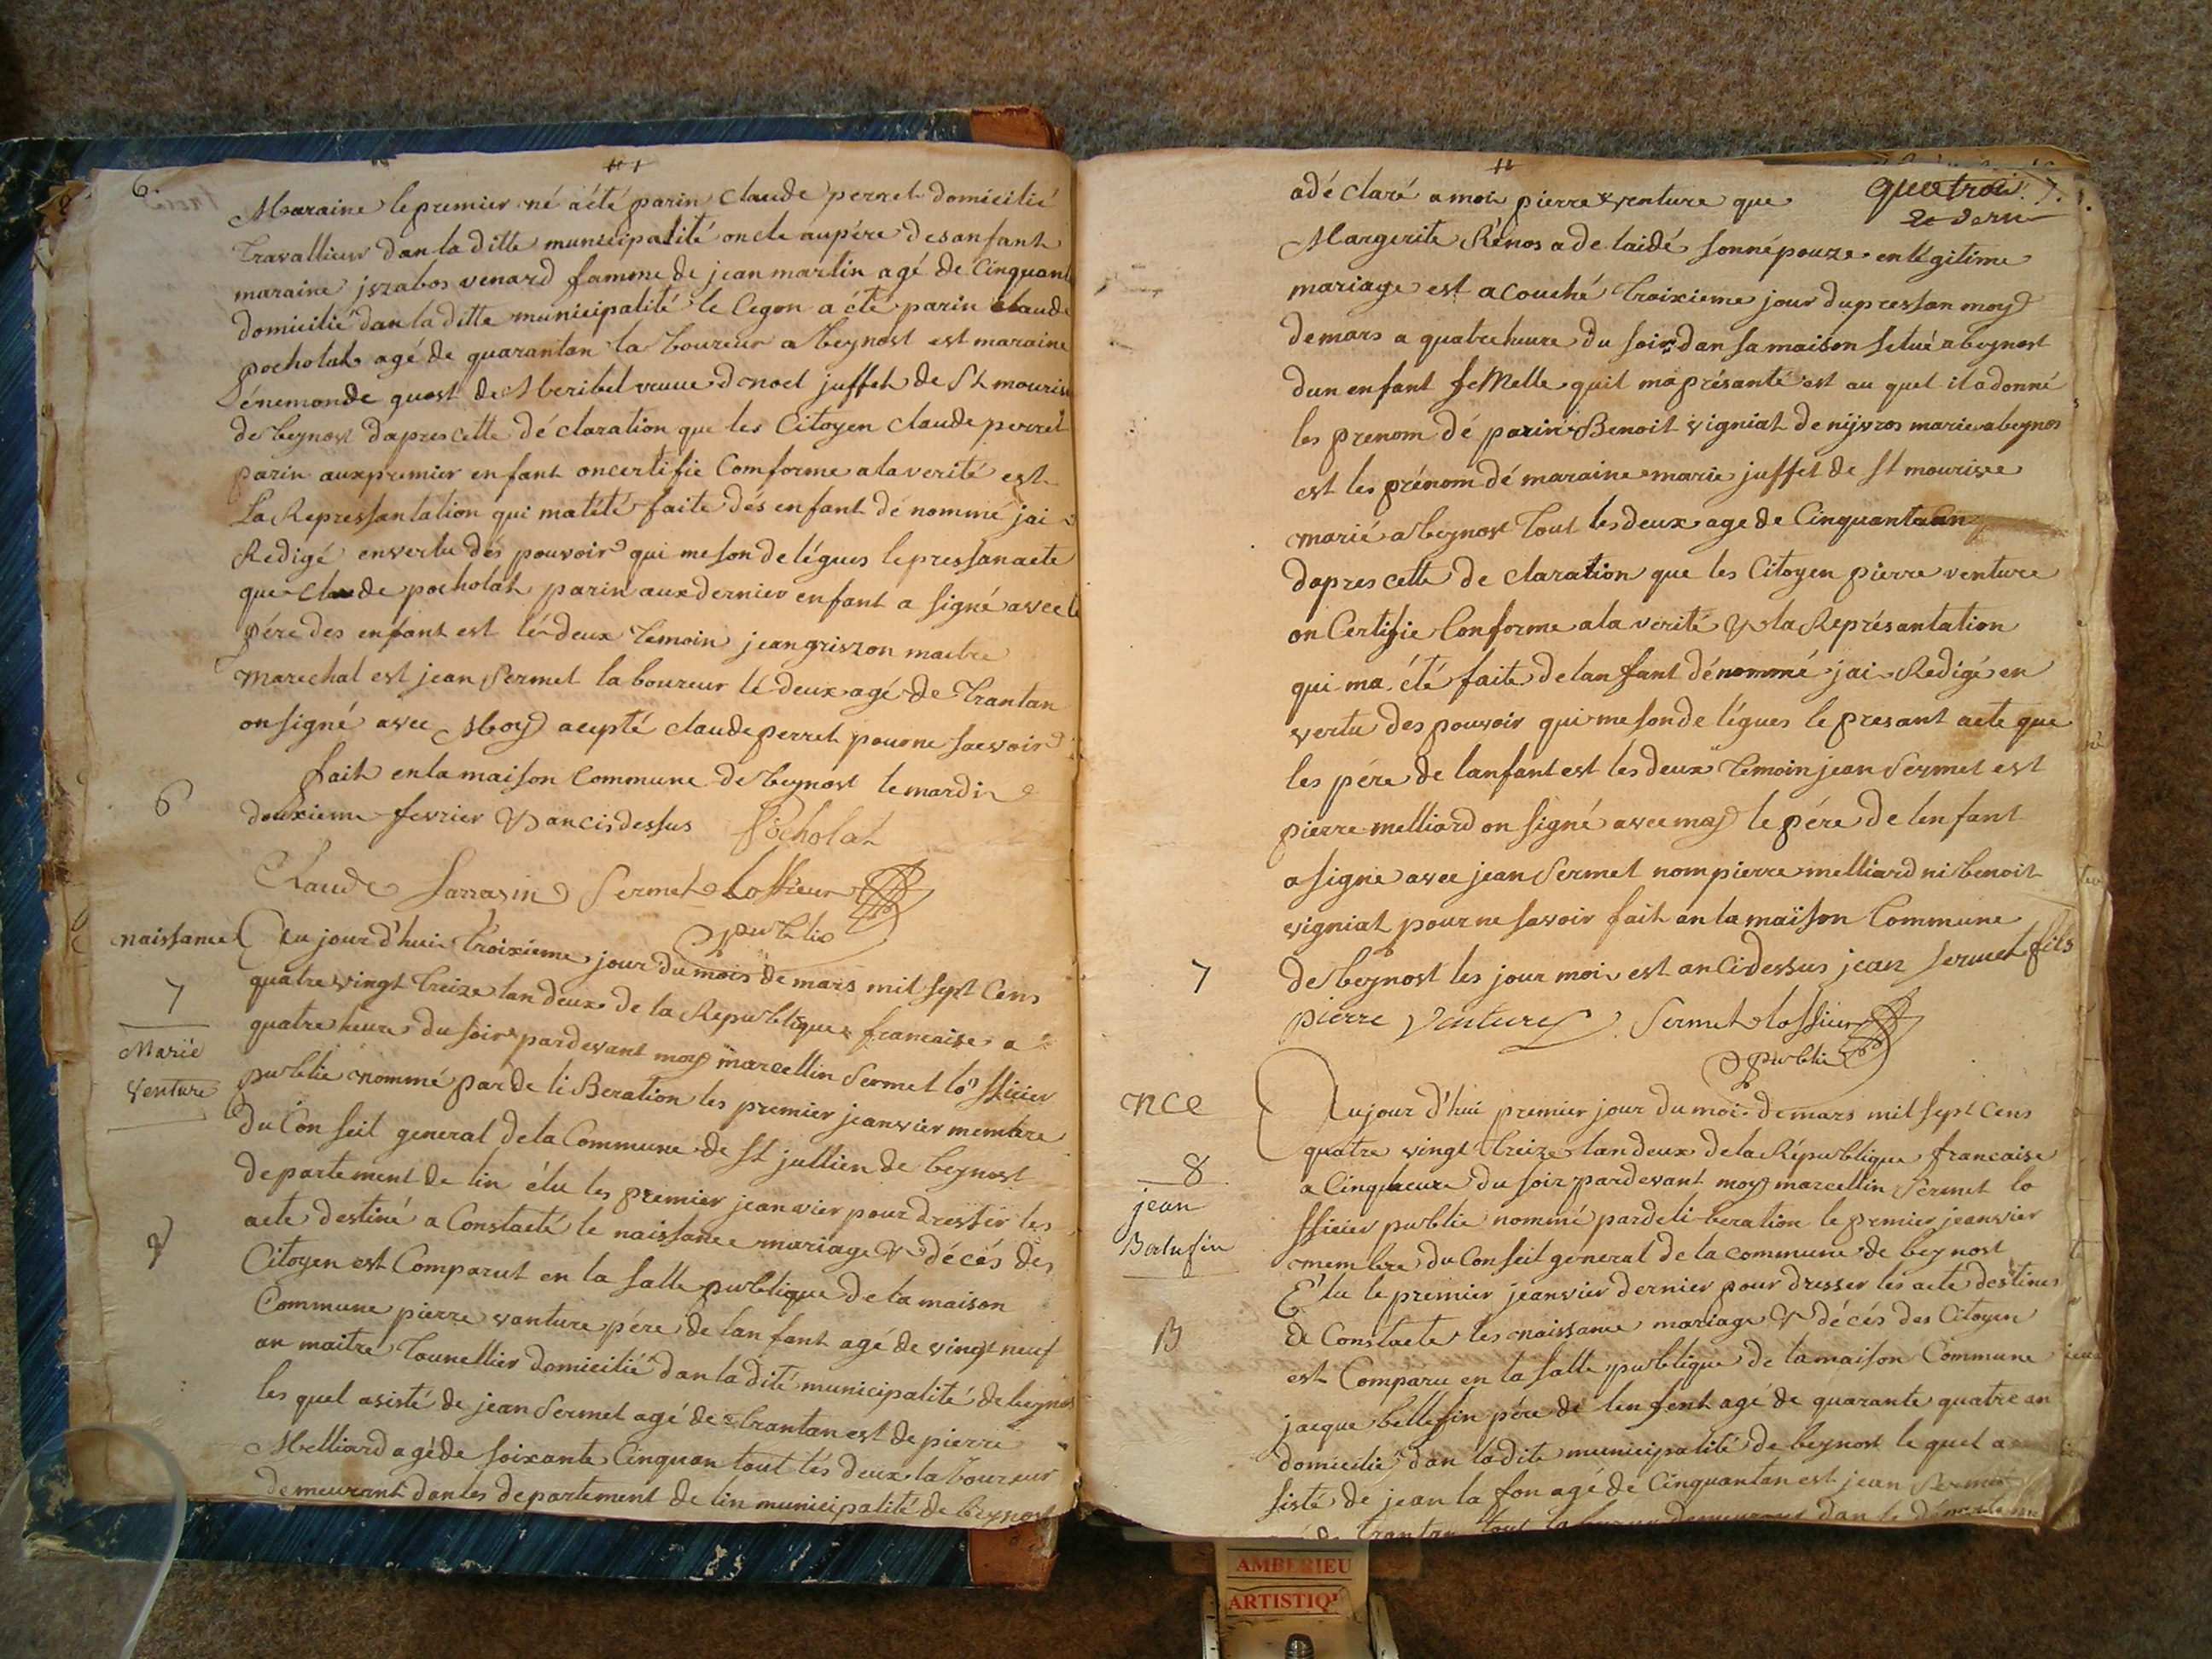 6.
Maraine le premier né a été parin Claude perret domicilié
Travallieur dan la ditte municipalité oncle aupére des anfant
maraine jszabos venard famme de jean martin agé de Cinquant
domicilié dan la ditte municipalité le Cegon a été parin Claude
pocholat agé de quarantan la boureur a beynost est maraine
énemonde guost de Meribel veuue de noel juffet de St mourise
de beynost dapres cette dé claration que les Citoyen claude perret
parin aux premier enfant on certifie Comforme a la verité est
La Repressantation qui matété faite dés enfant dé nommé jai
Redigé en vertu dés pouvoir qui me son de légues le pressan acte
que Claude pocholat parin aux dernier enfant a signé avec le
pére des enfant est lé deux temoin jean griszon maitre
marechal est jean Sermet la boureur lé deux agé de Trantan
on signé avec Moy acepté claude perret pour ne sacvoir
fait en la maison Commune de beynost le mardi
6
douxieme fevrier & an ci dessus Pocholat
Claude Sarrasin Sermet lofficier
publie
naissance
Au jour d'hui troixieme jour du mois de mars mil sept Cens
quatre vingt treize lan deux de la Republique francaise a
7
quatre heure du soir pardevant moy marcellin Sermet lo fficier
Marie
venture
publie nommé par de li Beration les premier jeanvier membre
du Con seil general de la Commune de St jullien de beynost
departement de lin élu les premier jeanvier pour dresser les
acte destiné a Constacté le naissance mariage & décés des
Citoyen est Comparut en la salle publique de la maison
Commune pierre vanture pére de lan fant agé de vingt neuf
an maitre Tounellier domicilié dan la dité municipalité de beynos
les quel asisté de jean Sermet agé de trantan est de pierre
Melliard agé de soixante Cinquan tout lés deux la boureur
demeurant dan les departement de lin municipalité de beynost
quatroi. 7.
adé claré a moi pierre venture que
Margerite Rénos a de laidé sonné pouze en légitime
mariage est acouché troixieme jour du pressan moy
de mars a quatre heure du soir dan sa maison setué a beynost
dun enfant feMelle quil ma présanté est au quel il a donné
les prenom dé parin Benoit vigniat de nijvros marie a beynos
est les prénom dé maraine marie juffet de st mourise
marié a beynost tout les deux age de Cinquantan
dapres cette de claration que les Citoyen pierre venture
on Certifie Conforme a la verité & la Représantation
qui ma été faite de lan fant dénommé jai Redigé en
vertu des pouvoir qui me son de légues le presant acte que
les pére de lanfant est les deux temoin jean Sermet est
pierre melliard on signé avec moy le pére de lenfant
a signé avec jean Sermet nom pierre melliard ni benoit
vigniat pour ne savoir fait an la maison Commune
7
de beynost les jour moi est an ci dessus jean sermet fils
pierre venture Sermet lofficier
publie
nce
Aujour d'hui premier jour du moi de mars mil sept Cens
quatre vingt treize lan deux de la République francaise
8
a Cinq heure du soir pardevant moy marcellin Sermet lo
jean
fficier publie nommé par deli beration le premier jeanvier
Belufin
membre du Conseil general de la commune de beynost
Élu le premier jeanvier dernier pour dresser les acte destines
B
a Constacte les naissance mariage & décés des Citoyen
est Comparu en la salle publique de la maison Commune
jacque bellefin pére de lenfent agé de quarante quatre an
domicilié dan ladite municipalité de beynost le quel a
sisté de jean la fon agé de Cinquantan est jean Sermet
AMBERIEU
ARTISTIQ